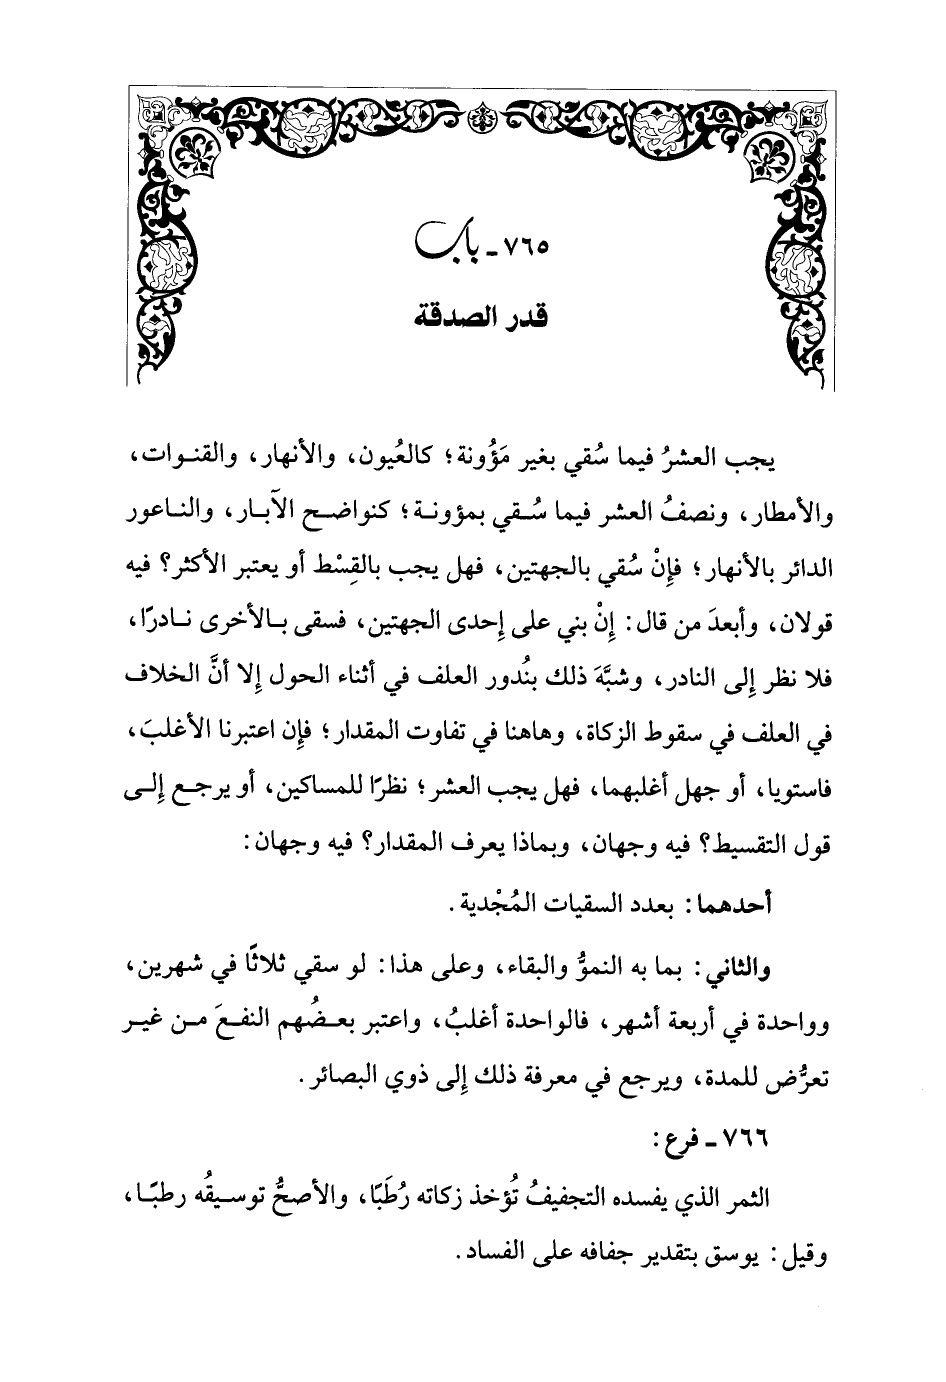 ٧٦٥ - باب
قدر الصدقة
يجب العشرُ فيما سُقي بغير مَؤُونة؛ كالعُيون، والأنهار، والقنوات،
والأمطار، ونصفُ العشر فيما سُقي بمؤونة؛ كنواضح الآبار، والناعور
الدائر بالأنهار؛ فإِنْ سُقي بالجهتين، فهل يجب بالقِسْط أو يعتبر الأكثر؟ فيه
قولان، وأبعدَ من قال: إِنْ بني على إِحدى الجهتين، فسقى بالأخرى نادرًا،
فلا نظر إِلى النادر، وشبَّهَ ذلك بنُدور العلف في أثناء الحول إِلا أنَّ الخلاف
في العلف في سقوط الزكاة، وهاهنا في تفاوت المقدار؛ فإِن اعتبرنا الأغلبَ،
فاستويا، أو جهل أغلبهما، فهل يجب العشر؛ نظرًا للمساكين، أو يرجع إِلى
قول التقسيط؟ فيه وجهان، وبماذا يعرف المقدار؟ فيه وجهان:
أحدهما: بعدد السقيات المُجْدية.
والثاني: بما به النموُّ والبقاء، وعلى هذا: لو سقي ثلاثًا في شهرين،
وواحدة في أربعة أشهر، فالواحدة أغلبُ، واعتبر بعضُهم النفعَ من غير
تعرُّض للمدة، ويرجع في معرفة ذلك إِلى ذوي البصائر.
٧٦٦ - فرع:
الثمر الذي يفسده التجفيفُ تُؤخذ زكاته رُطَبًا، والأصحُّ توسيقُه رطبًا،
وقيل: يوسق بتقدير جفافه على الفساد.